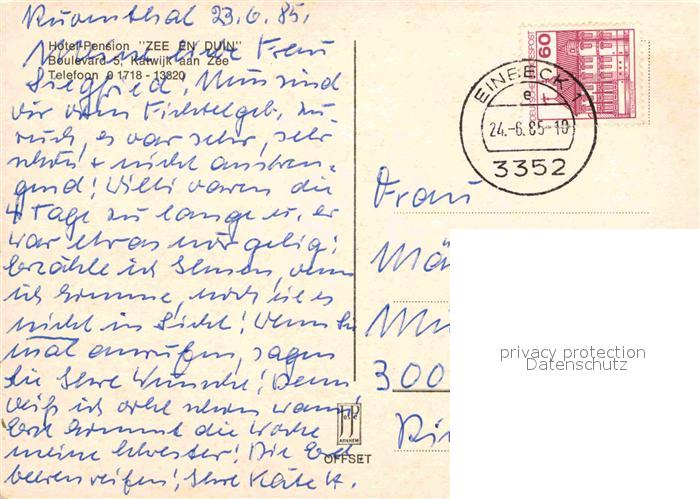 Kuventhal 23.6.85,
Hotel-Pension "ZEE EN DUIN"
Boulevard 5, Katwijk aan Zee
Telefoon 0 1718 - 13820
Meine liebe Frau
Siegfried! Nun sind
wir vom Fichtelgeb. zu-
rück, es war sehr, sehr
schön + nicht anstren-
gend! Willi waren die
4 Tage zu lange u. er
war etwas nörgelig;
erzähle ich Ihnen, wenn
ich komme, noch ist es
nicht in Sicht! Wenn Sie
mal anrufen, sagen
Sie Ihre Wünsche! Denn
weiß ich wohl schon wann!
Erst kommt die Woche
meine Schwester! Die Erd
beeren reifen! Ihre Käte H.
DEUTSCHE BUNDESPOST
60
EINBECK 1
e
24.-6.85-10
3352
Frau
300
JP
ARNHEM
OFFSET
privacy protection
Datenschutz